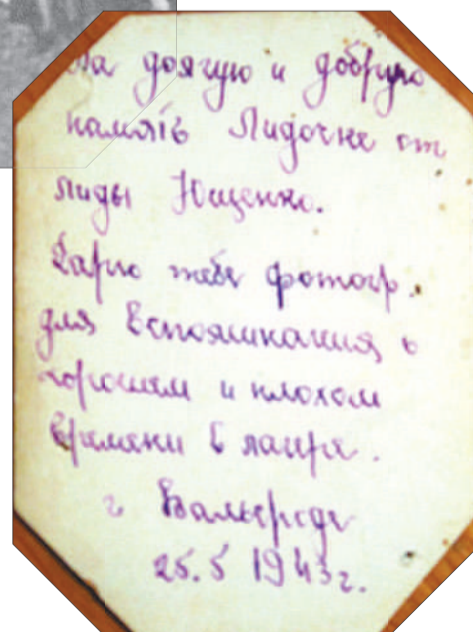 На долгую и добрую
память Лидочке от
Лиды Ющенко.
Дарю тебе фотогр.
для вспоминания о
хорошем и плохом
времени в лагре.
г Вальсроде
25.5 1943г.